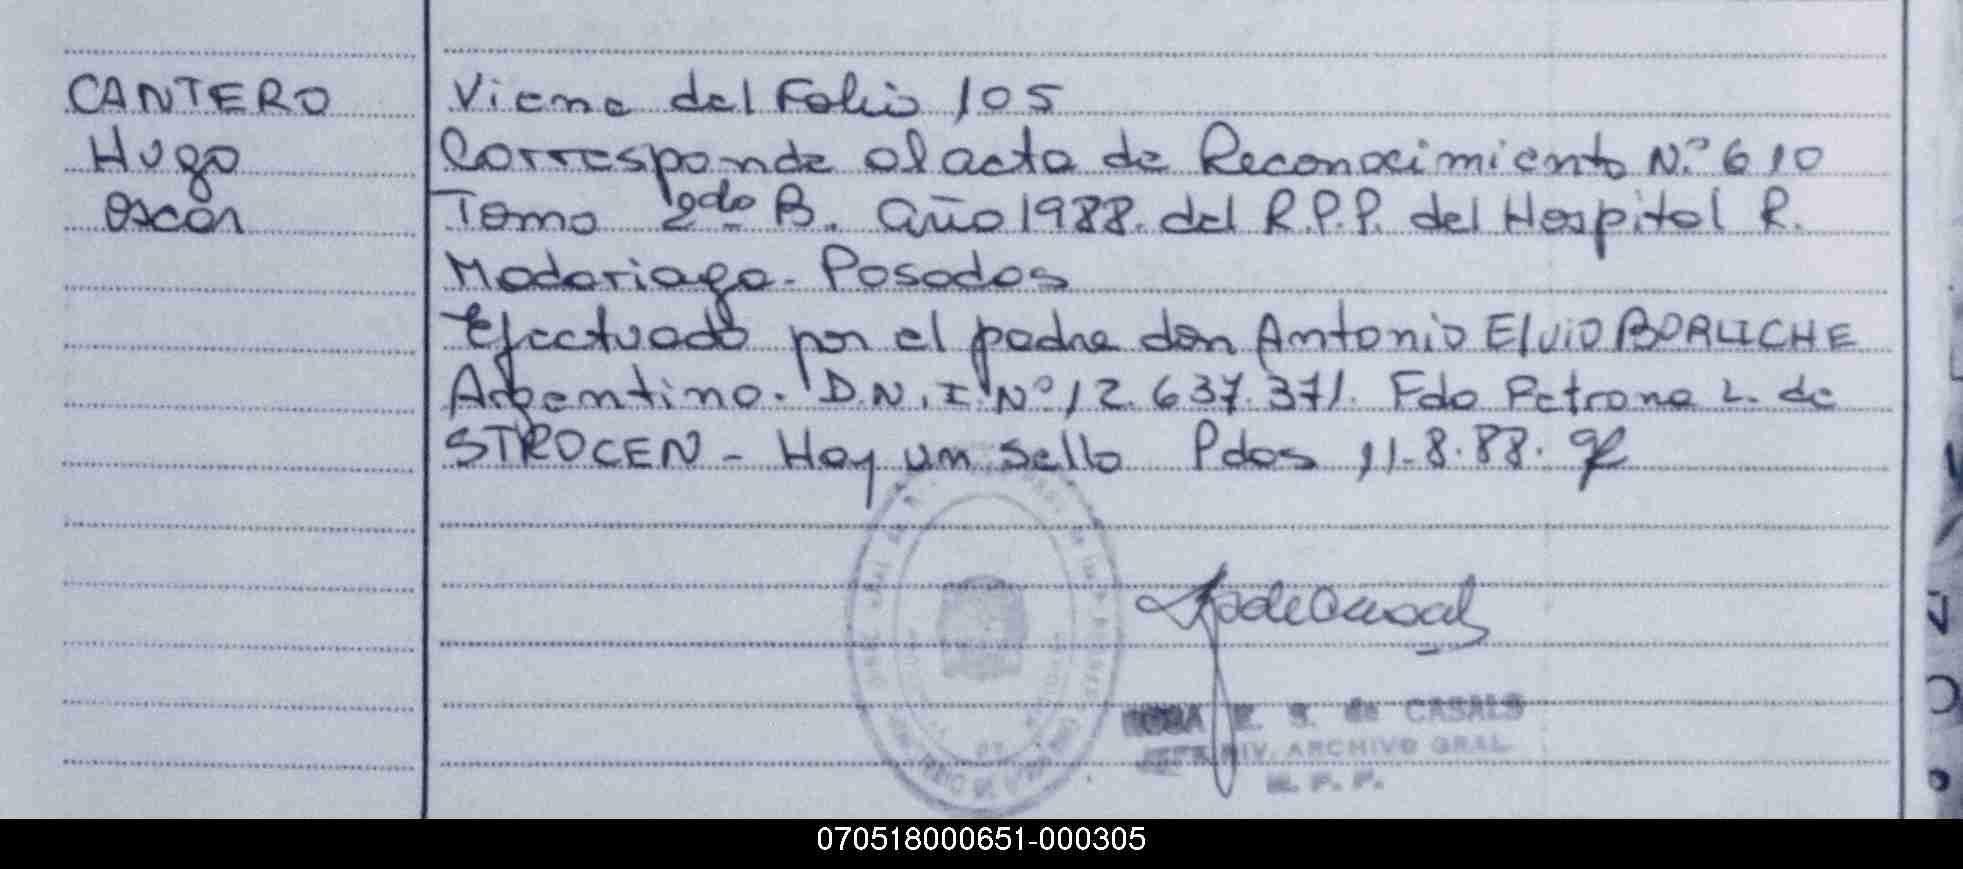 CANTERO
Hugo
Oscar
Viene del Folio 105
Corresponde al acta de Reconocimiento N.º 610
Tomo 2do B. Año 1988. del R.P.P. del Hospital R.
Madariaga - Posadas
Efectuado por el padre don Antonio Elvio BORLICHE
Argentino. D.N.I. Nº 12.637.371. Fdo Petrona L. de
STROCEN - Hay un sello Pdas 11-8-88.
E. S. de CASALS
JEFE DIV. ARCHIVO GRAL.
R. P. P.
070518000651-000305